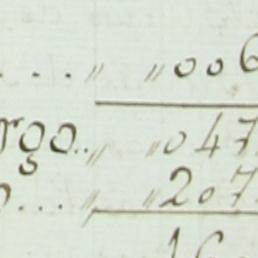 .... " "006
rgo.. " "047
o... " "207
160